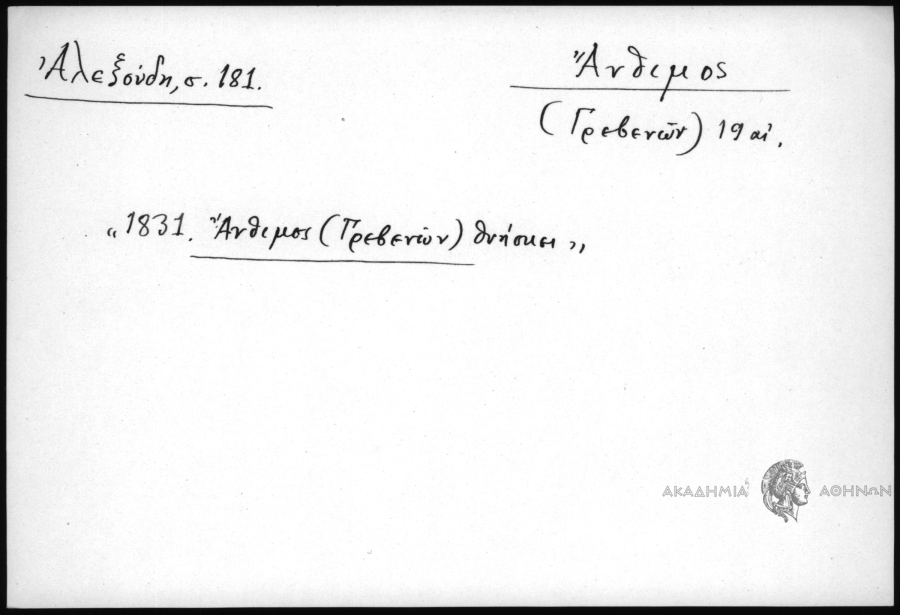 Ἀλεξούδη, σ. 181.
Ἄνθιμος
(Γρεβενῶν) 19 αἰ.
"1831. Ἄνθιμος (Γρεβενῶν) θνήσκει"
ΑΚΑΔΗΜΙΑ ΑΘΗΝΩΝ